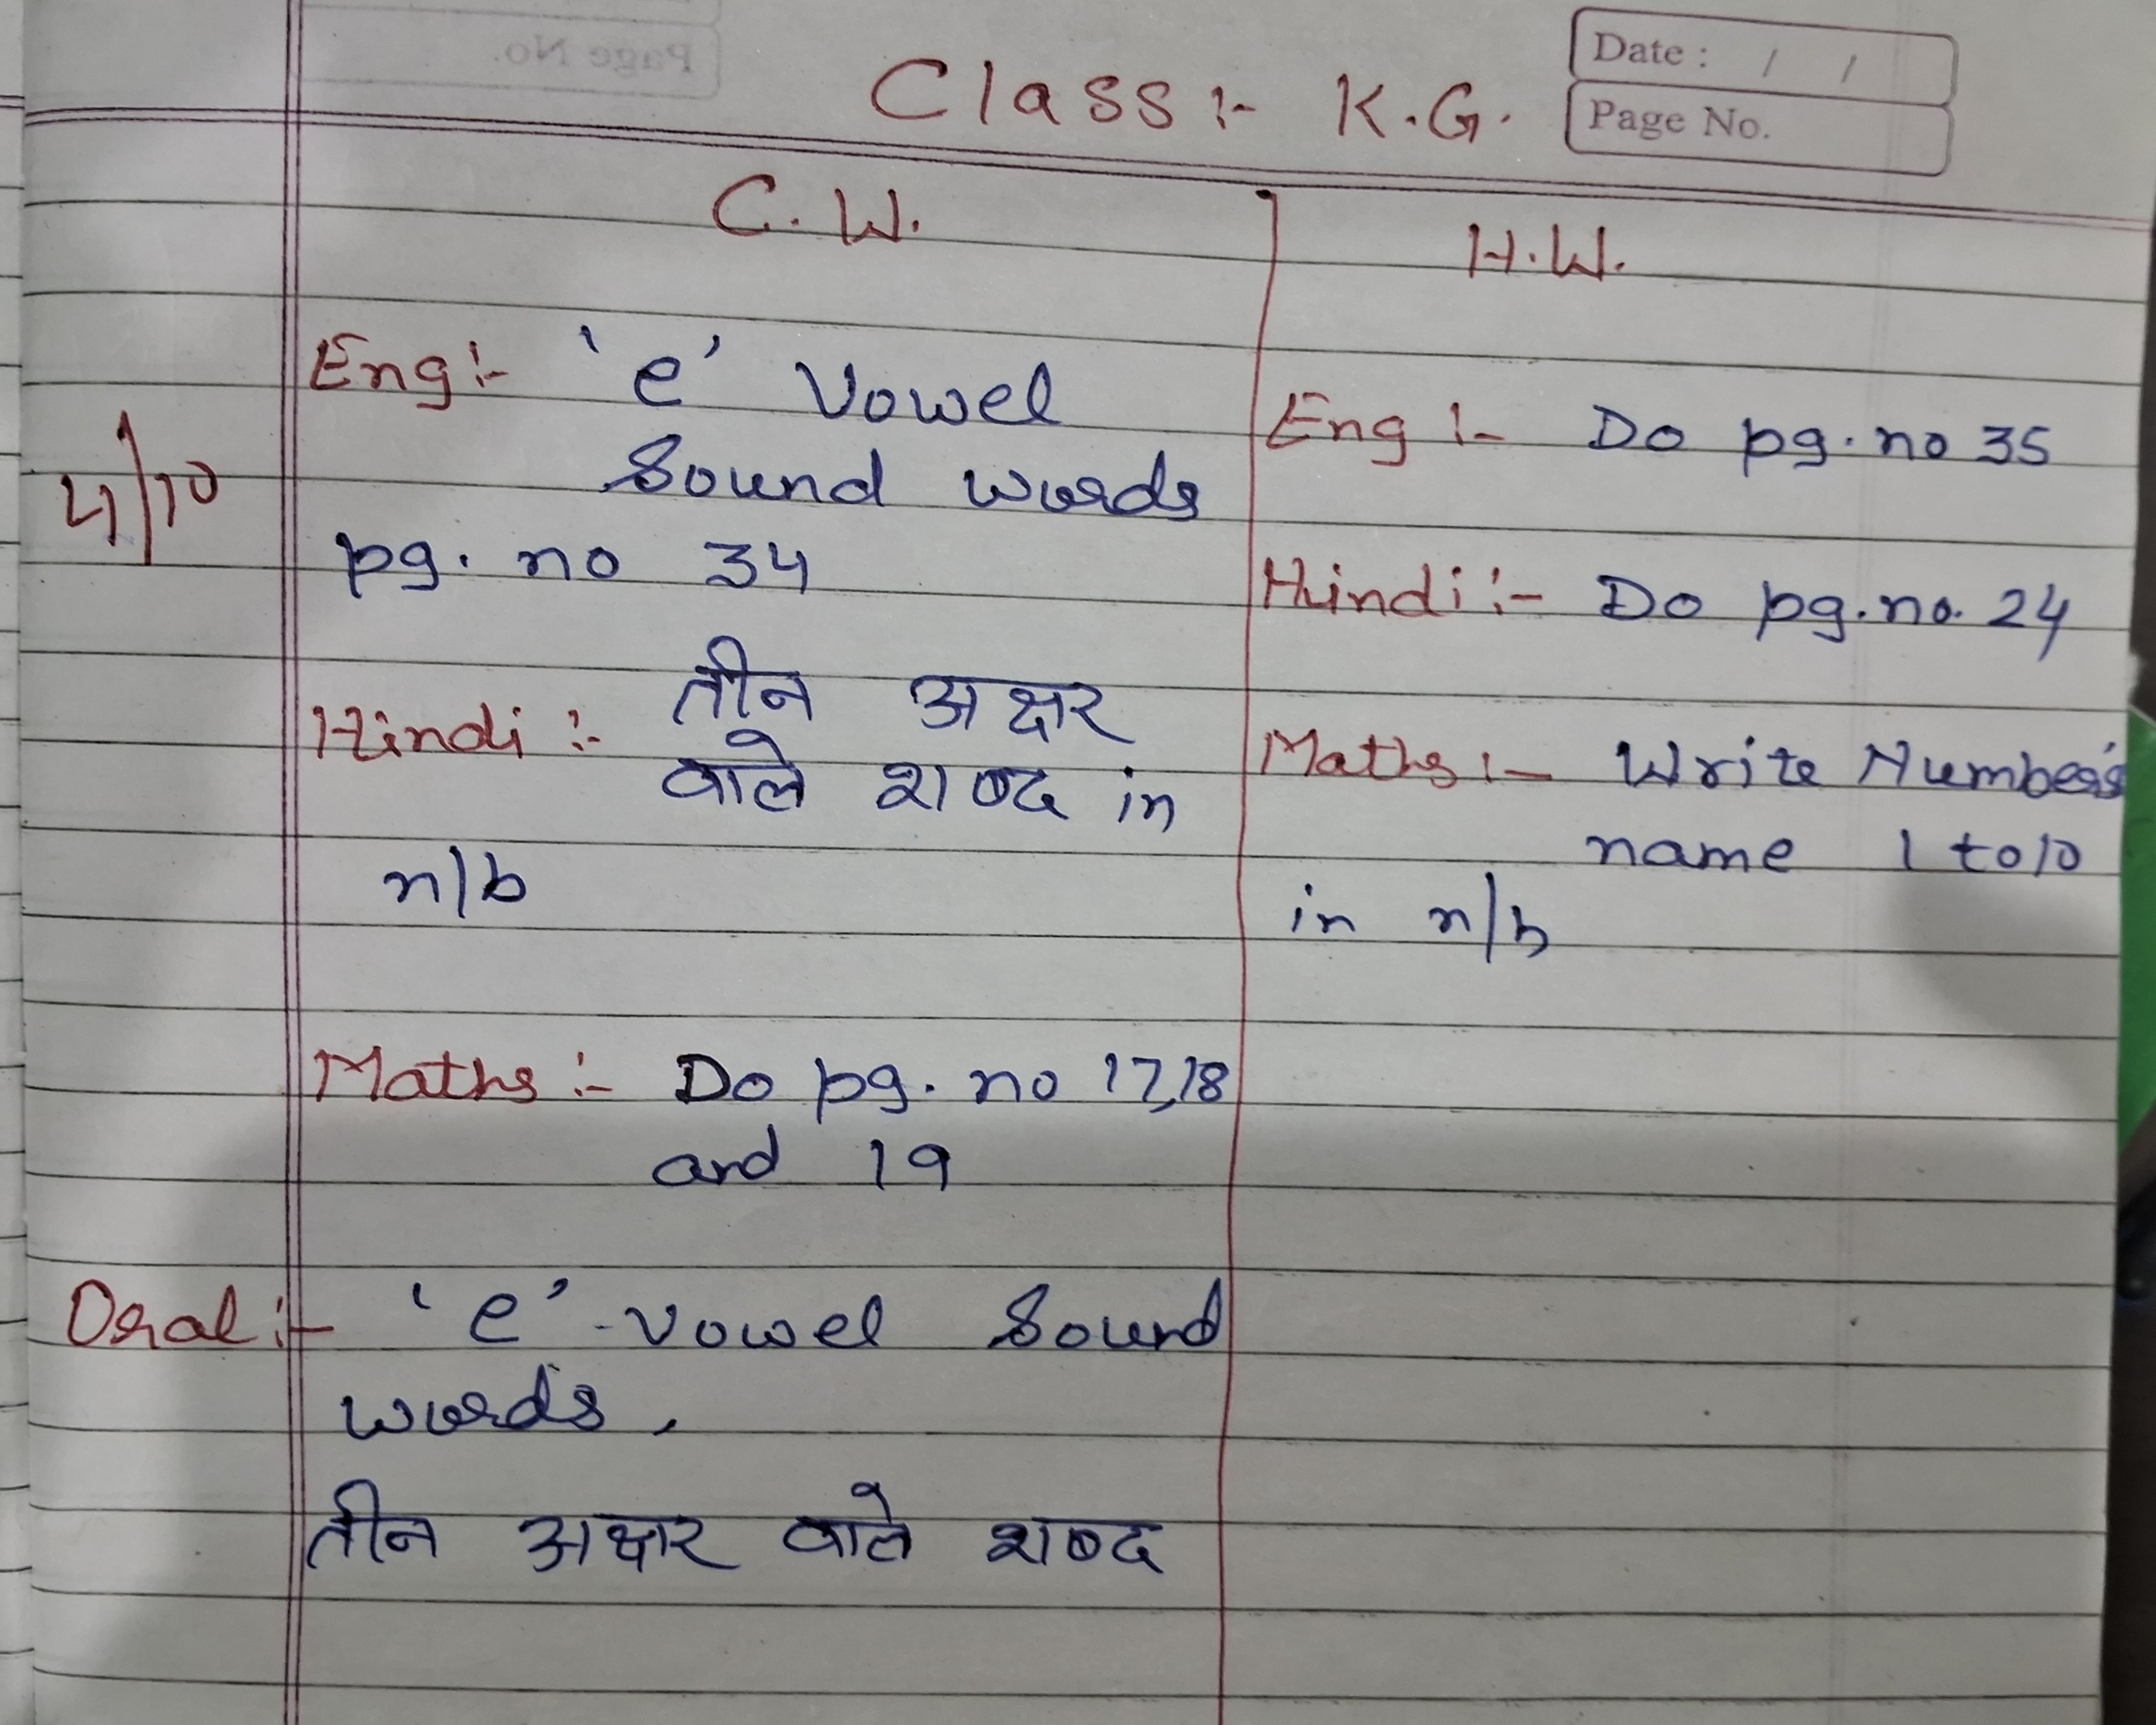 Page No.
Class :- K.G.
Date : / /
Page No.
C.W.
Eng :- 'e' Vowel
Sound words
4/10
pg. no 34
Hindi :- तीन अक्षर
वाले शब्द in
n/b
Maths :- Do pg. no 17,18
and 19
Oral :- 'e' - vowel Sound
words,
तीन अक्षर वाले शब्द
H.W.
Eng :- Do pg. no 35
Hindi :- Do pg. no. 24
Maths :- Write Number's
name 1 to 10
in n/b